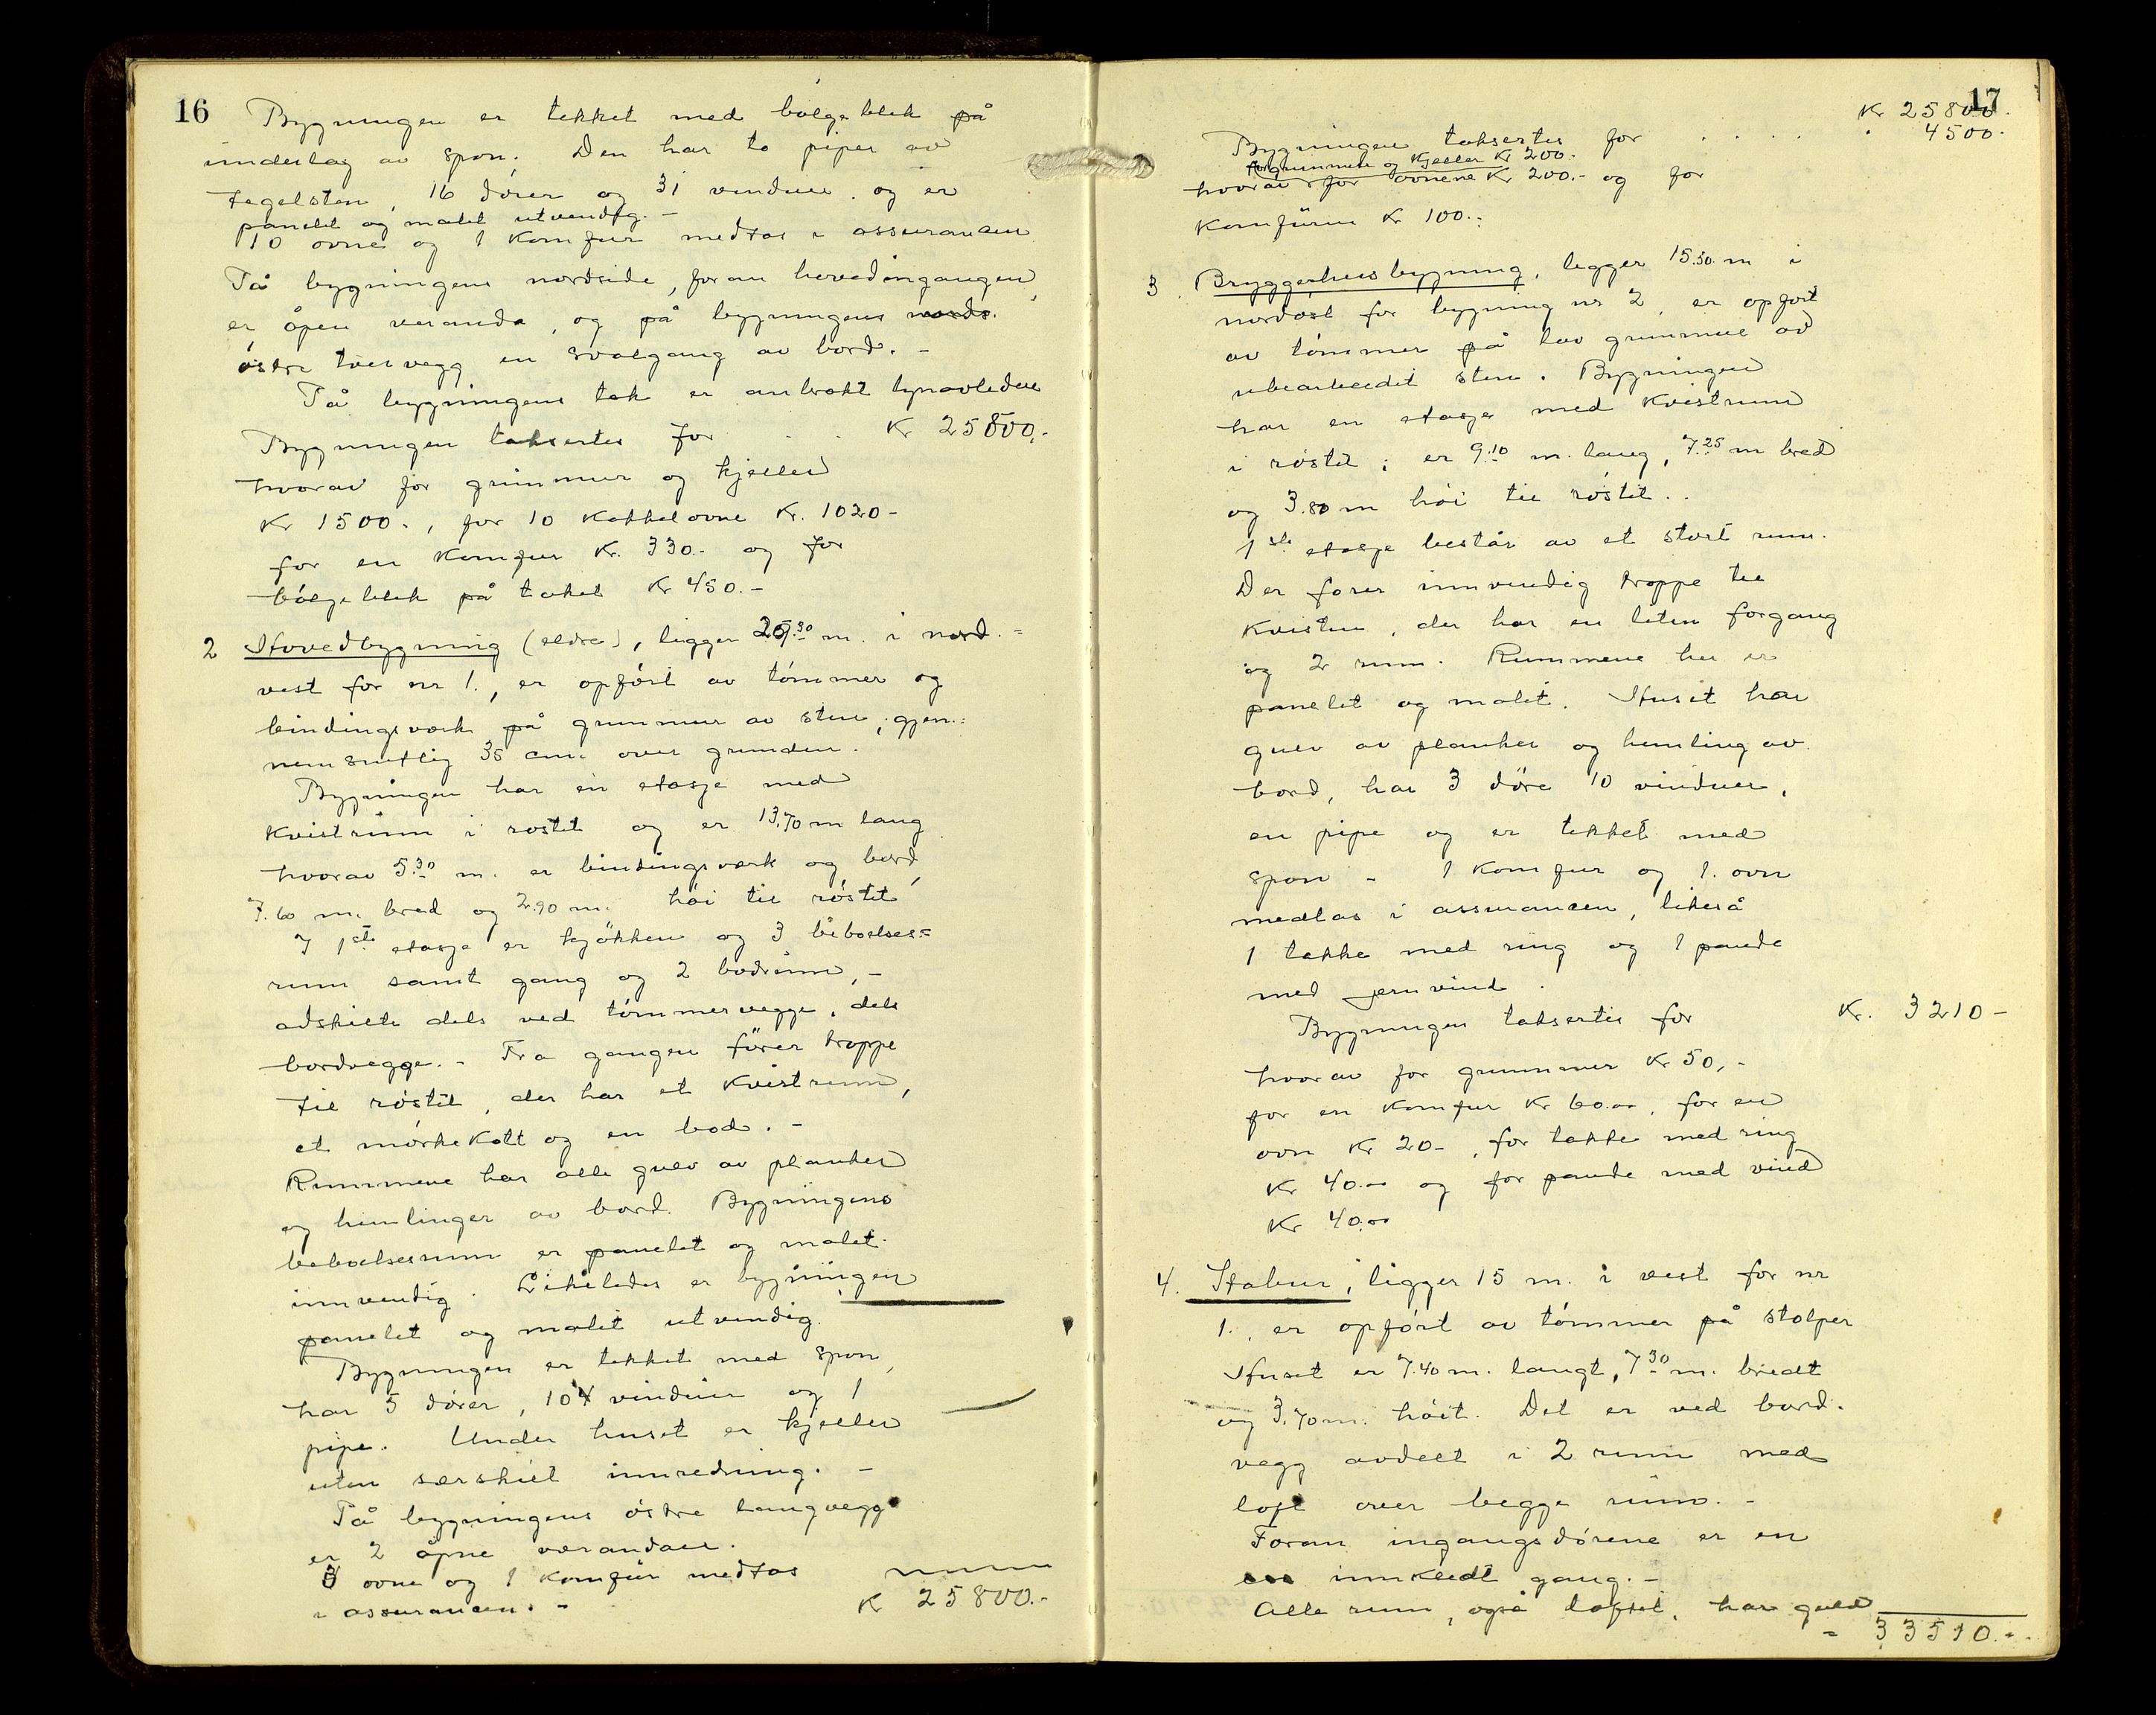 16
Bygningen er tekket med bølgeblek på
underlag av spon. Den har to piper av
tegelsten, 16 dører og 31 vinduer og er
panelet og malet utvendig. -
10 ovne og 1 komfur medtas i assurancen
På bygningens nordside, foran hovedingangen,
er åpen veranda, og på bygningens nords.
østre tvervegg en svalgang av bord. -
På bygningens tak er anbrakt lynavledere
Bygningen takseres for . . Kr 25800.-
hvorav for grunnmur og kjeller
Kr 1500.-, for 10 kakkelovne Kr. 1020-
for en komfur Kr. 330.- og for
bølgeblek på taket Kr 450.-
2 Hovedbygning (eldre), ligger 29.30 m. i nord.=
vest for nr 1., er opført av tømmer og
bindingsverk på grunnmur av sten, gjen.=
nemsnitlig 35 cm. over grunden.
Bygningen har en etasje med
kvistrum i røstet og er 13.70 m lang
hvorav 5.30 m. er bindingsverk og bord,
7.60 m. bred og 2.90 m. høi til røstet
I 1ste etasje er kjøkken og 3 beboelses=
rum samt gang og 2 bodrum, -
adskilte dels ved tømmervegge, dels
bordvegge. - Fra gangen fører troppe
til røstet, der har et kvistrum,
et mørkekott og en bod. -
Rummene har alle gulv av planker
og himlinger av bord. Bygningens
beboelsesrum er panelet og malet
innvendig. Likeledes er bygningen
panelet og malet utvendig.
Bygningen er tekket med spon,
har 5 dører, 10 vinduer og 1
pipe. Under huset er kjeller
uten særskilt innredning. -
På bygningens østre langvegg
er 2 åpne verandaer.
3 ovne og 1 komfur medtas
i assurancen. -
K 25800.-
17
Kr 25800.
Bygningen takseres for . . . . . 4500.
for grunnmur og kjeller Kr 200.-
hvorav for ovnene Kr 200.- og for
komfuren Kr 100.-
3. Bryggerhusbygning, ligger 15.30 m i
nordøst for bygning nr 2, er opført
av tømmer på lav grunnmur av
ubearbeidet sten. Bygningen
har en etasje med kvistrum
i røstet, er 9.10 m. lang, 7.25 m bred
og 3.80 m høi til røstet..
1ste etasje består av et stort rum.
Der fører innvendig troppe til
kvisten, der har en liten forgang
og 2 rum. Rummene her er
panelet og malet. Huset har
gulv av planker og himling av
bord, har 3 døre 10 vinduer,
en pipe og er tekket med
spon - 1 komfur og 1. ovn
medtas i assurancen, likeså
1 takke med ring og 1 pande
med jernvind.
Bygningen takseres for Kr. 3210-
hvorav for grunnmur Kr 50,-
for en komfur Kr 60.00, for en
ovn Kr 20-, for takke med ring
Kr 40.00 og for pande med vind
Kr 40.00
4. Stabur, ligger 15 m. i vest for nr
1., er opført av tømmer på stolper
Huset er 7.40 m. langt, 7.30 m. bredt
og 3.70 m. høit. Det er ved bord.
vegg avdelt i 2 rum med
loft over begge rum. -
Foran ingangsdørene er en
innkledt gang. -
Alle rum, også loftet, har gulv
- 33510.-